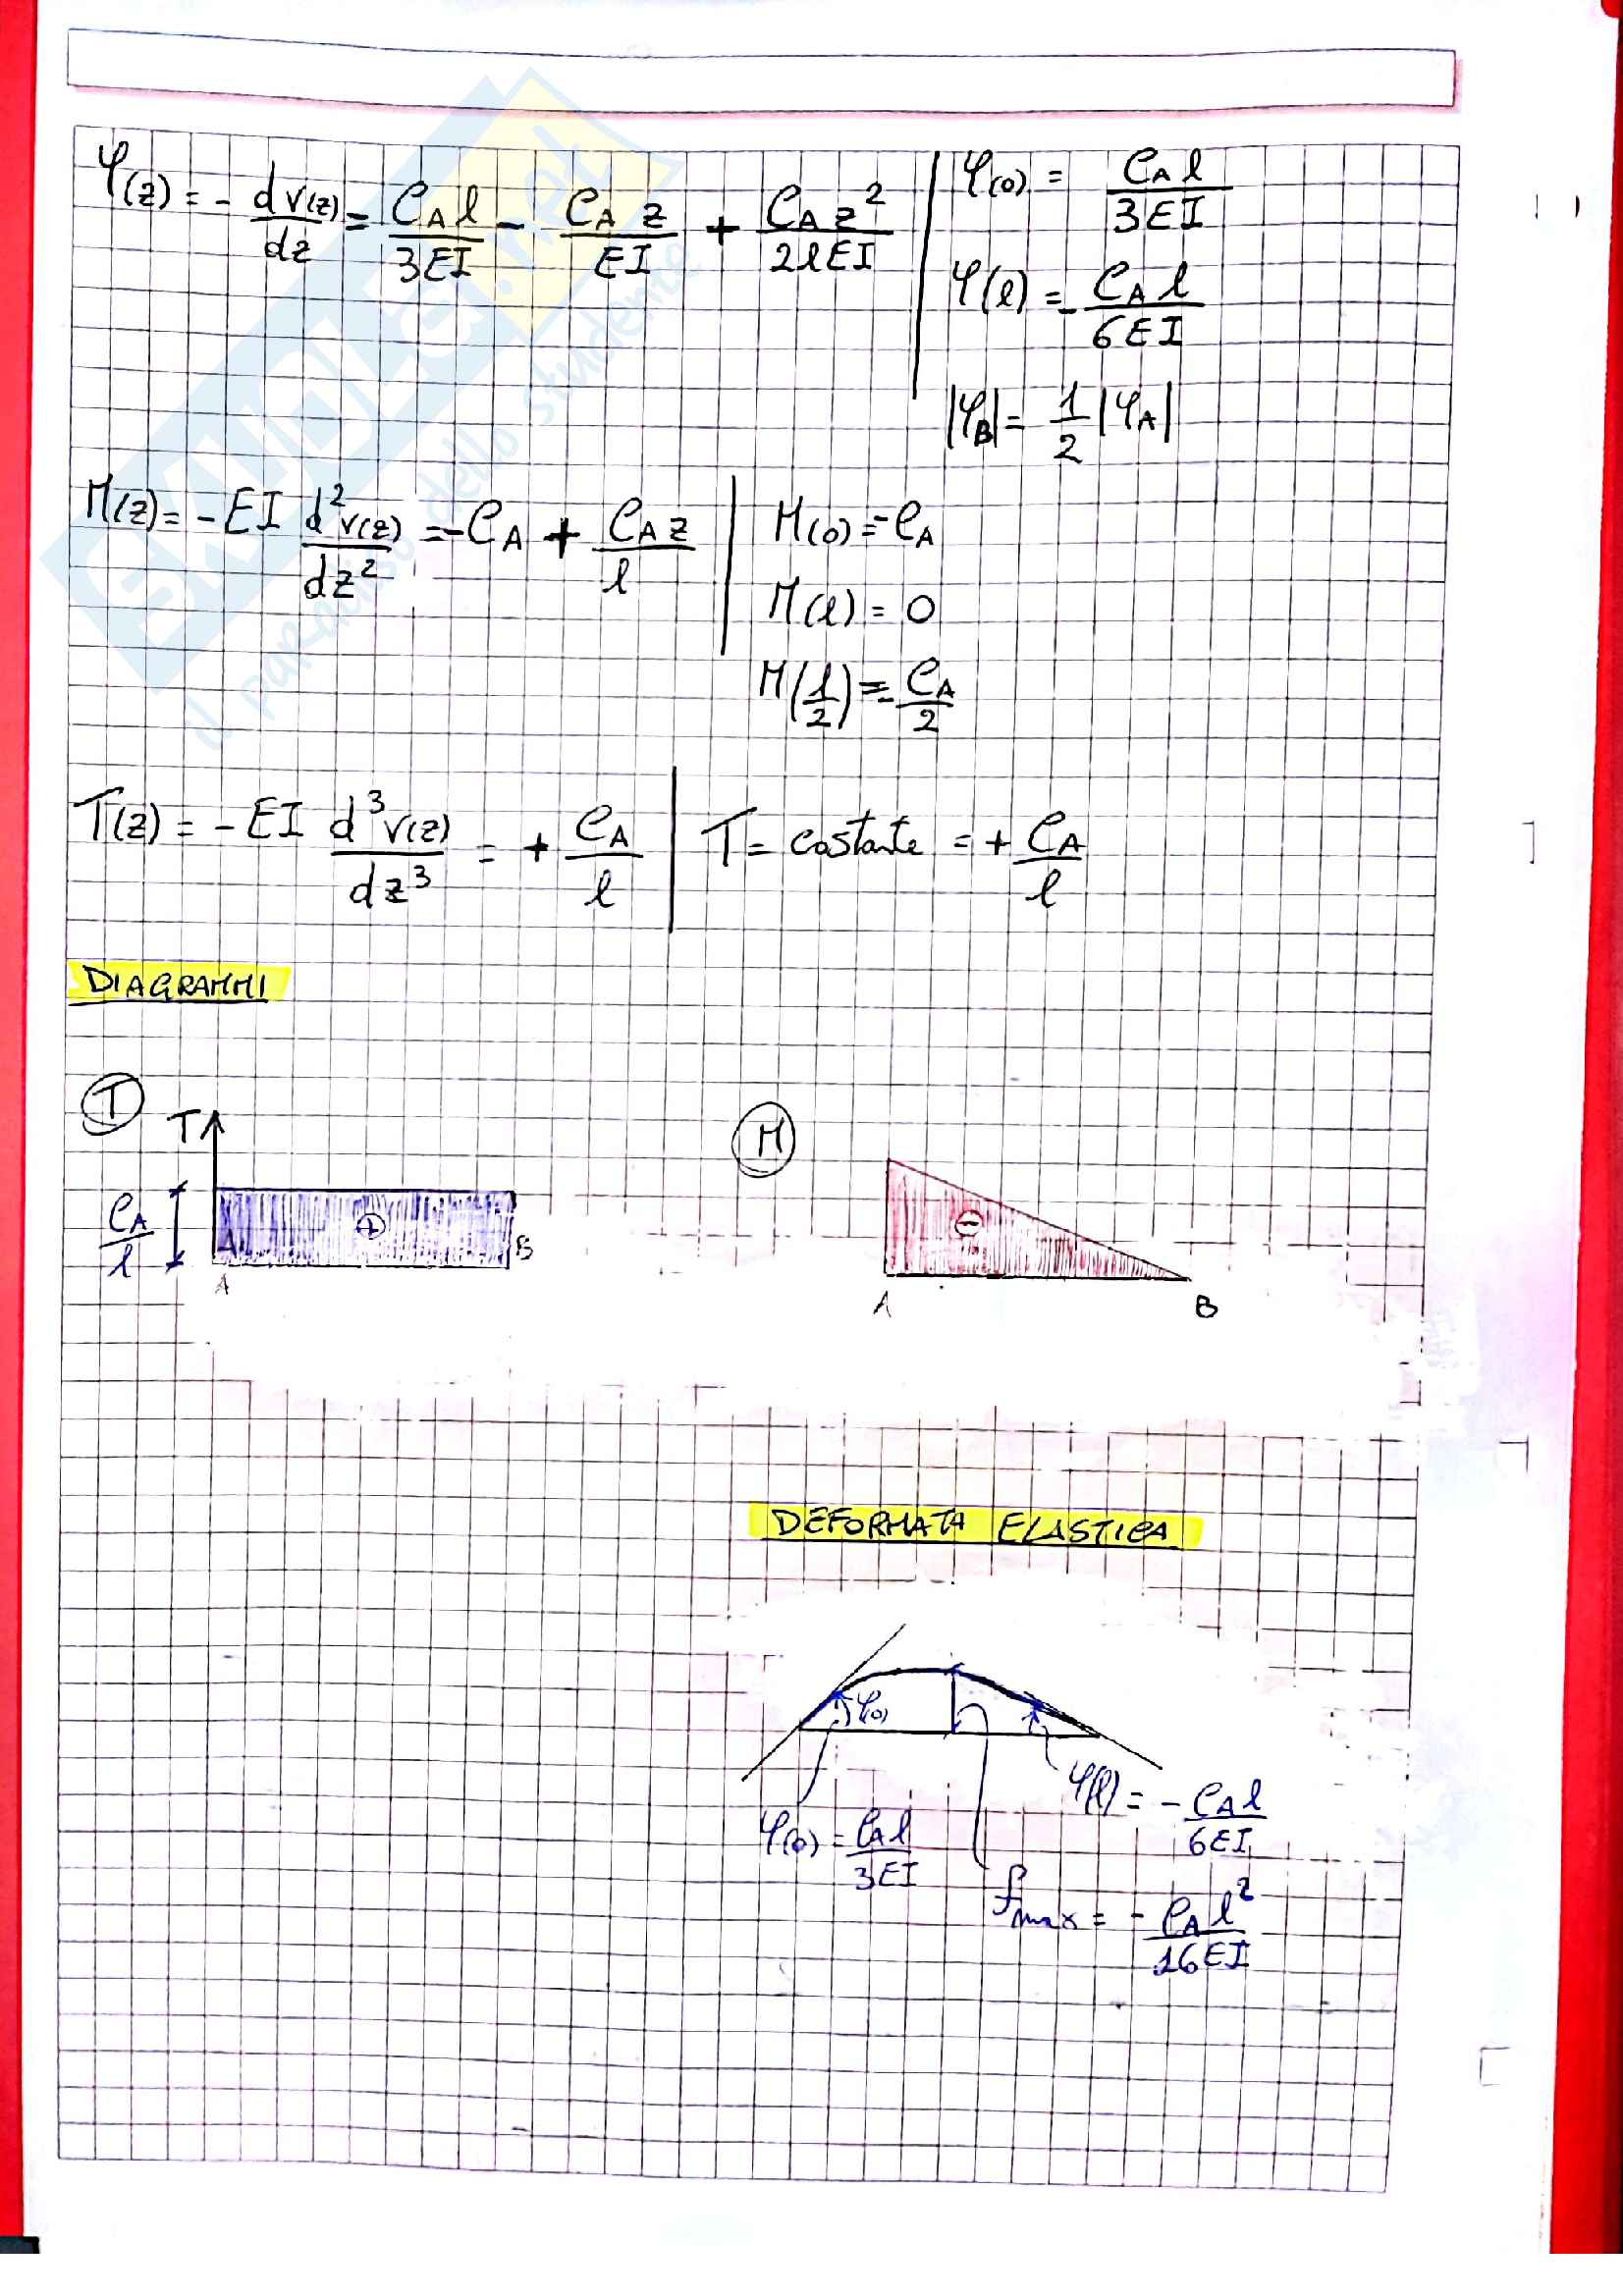 φ(z) = - dv(z)/dz = C_A l/3EI - C_A z/EI + C_A z²/2lEI | φ(0) = C_A l/3EI
φ(l) = - C_A l/6EI
|φ_B| = 1/2 |φ_A|
M(z) = -EI d²v(z)/dz² = -C_A + C_A z/l | M(0) = -C_A
M(l) = 0
M(l/2) = - C_A/2
T(z) = -EI d³v(z)/dz³ = + C_A/l | T = costante = + C_A/l
DIAGRAMMI
T
T
M
C_A/l
+
-
A
B
A
A
B
DEFORMATA ELASTICA
φ(0)
φ(l) = - C_A l/6EI
φ(0) = C_A l/3EI
f_max = - C_A l²/16EI
SKUOLA.net
il paradiso dello studente